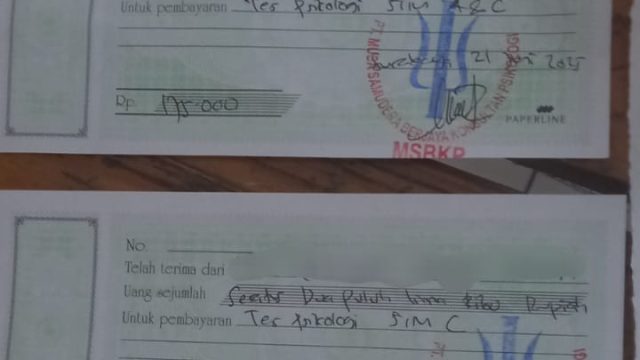 Untuk pembayaran Tes Psikologi SIM A & C
Surabaya 21 2025
Rp. 175.000
PAPERLINE
PT. MUTSAMUDERA BERJAYA KONSULTAN PSIKOLOGI
MSBKP
No.
Telah terima dari
Uang sejumlah Seratus Dua Puluh Lima Ribu Rupiah
Untuk pembayaran Tes Psikologi SIM C